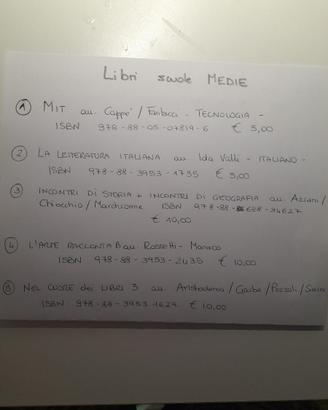 Libri scuole MEDIE
① MIT au. Cappe' / Fantacci - TECNOLOGIA -
ISBN 978-88-05-07819-6 € 5,00
② LA LETTERATURA ITALIANA au Ida Valli - ITALIANO -
ISBN 978-88-3953-1735 € 5,00
③ INCONTRI DI STORIA + INCONTRI DI GEOGRAFIA au. Azzani /
Chiocchio / ISBN 978-88-
€ 10,00
④ L'ARTE RACCONTA B au Rossetti -
ISBN 978-88-3953-2435 € 10,00
⑤ NEL CUORE dei LIBRI 3 au. Aristodemo / Gaiba / Pozzoli /
ISBN 978-88-3953-1629 € 10,00